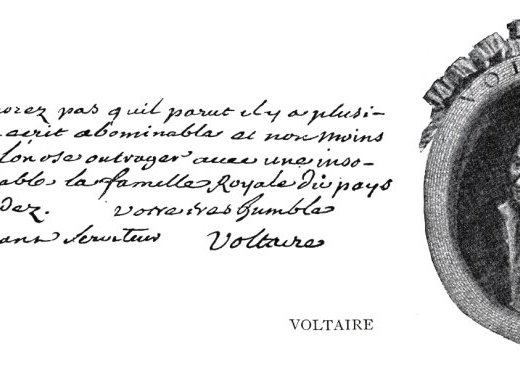 orez pas qu'il parut il y a plusi-
écrit abominable et non moins
l'on ose outrager avec une inso-
able la famille Royale du pays
dez. votre tres humble
ant serviteur Voltaire
VOLTAIRE
VOL